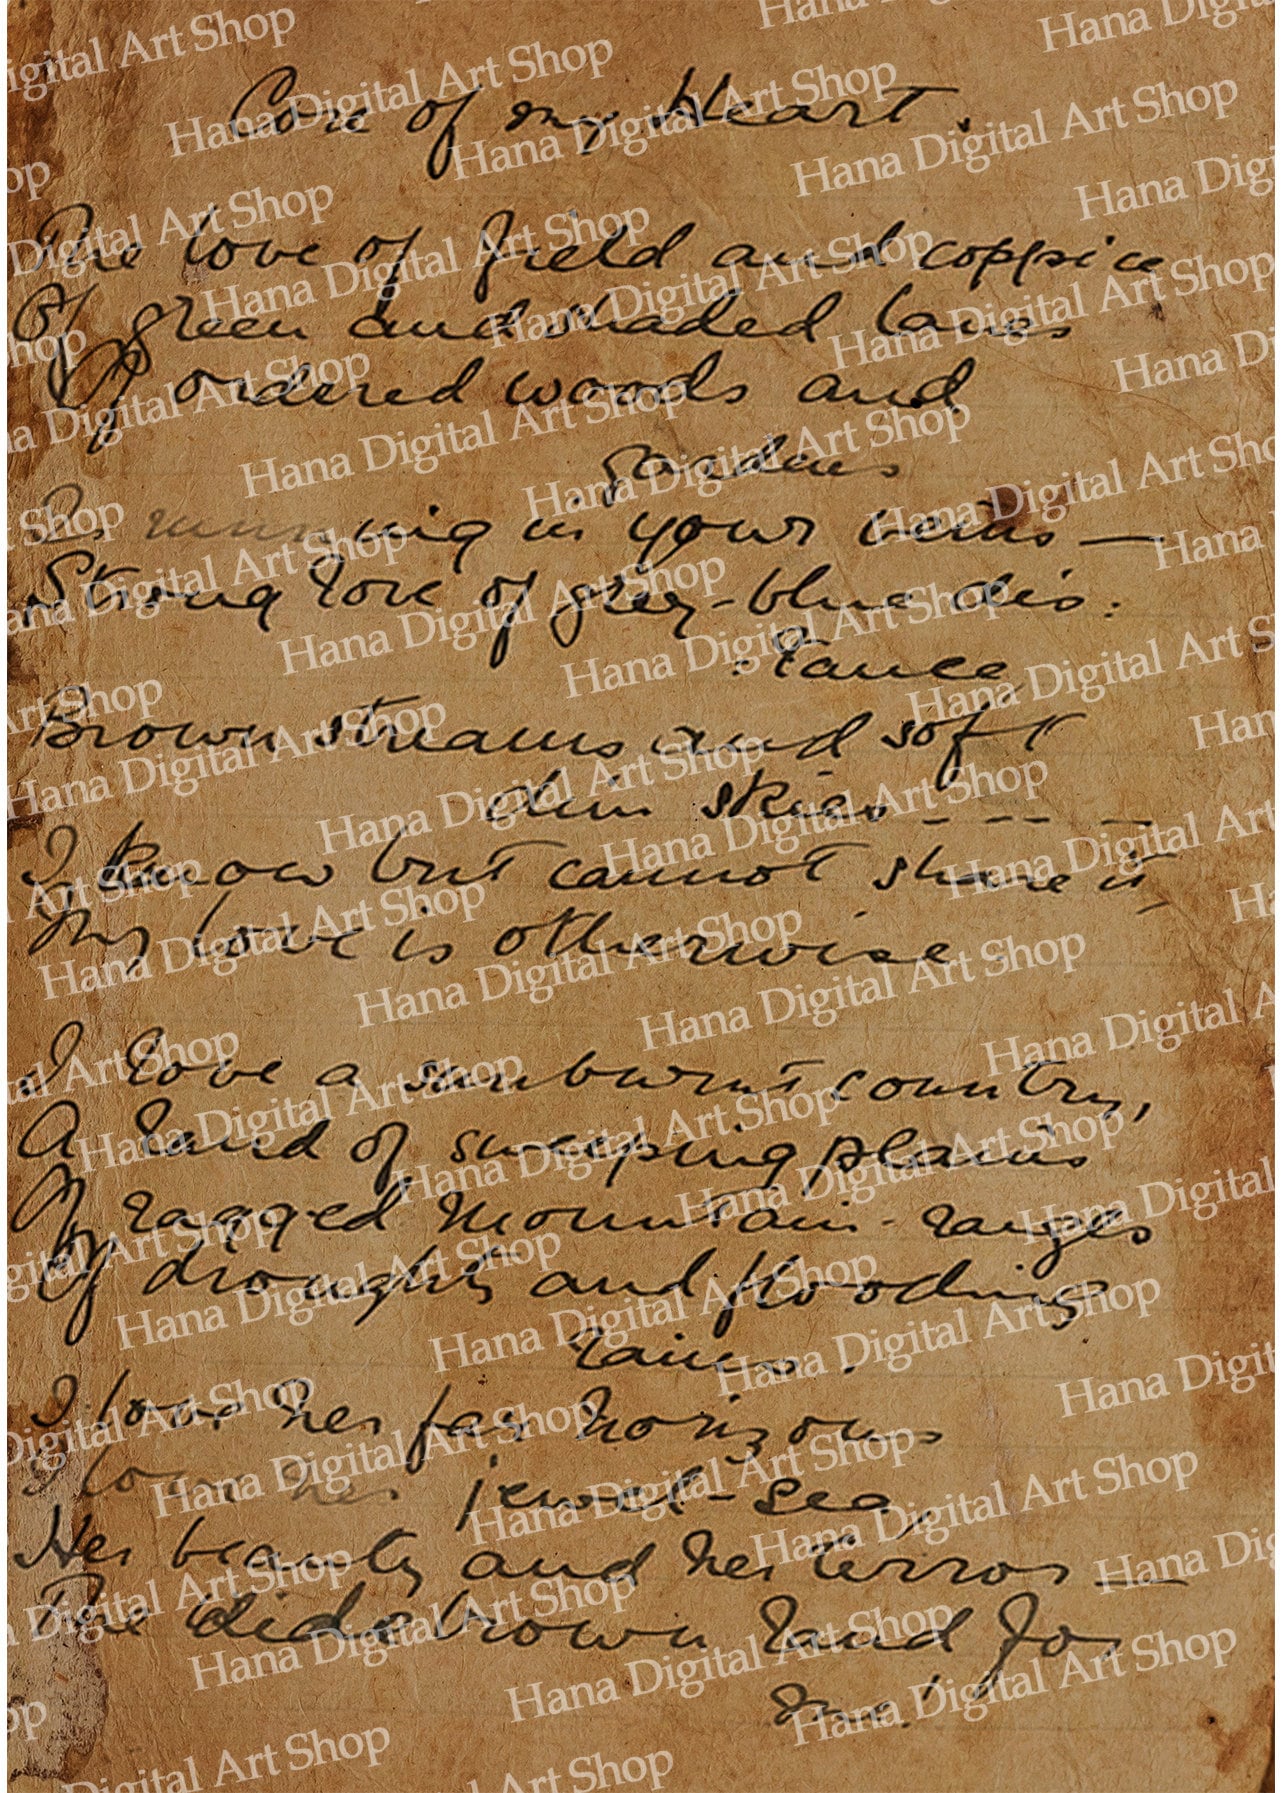 Core of my Heart.
The love of field and coppice
Of green and shaded lanes
Of ordered woods and
gardens
Is running in your veins —
Strong love of grey-blue dis:
:tance,
Brown streams and soft
dim skies - - - -
I know but cannot share it,
My love is otherwise.
I love a sunburnt country,
A land of sweeping plains
Of ragged mountain-ranges
Of droughts and flooding
rains.
I love her far horizons
I love her jewel-sea,
Her beauty and her terror —
The brown land for
me!
Hana Digital Art Shop